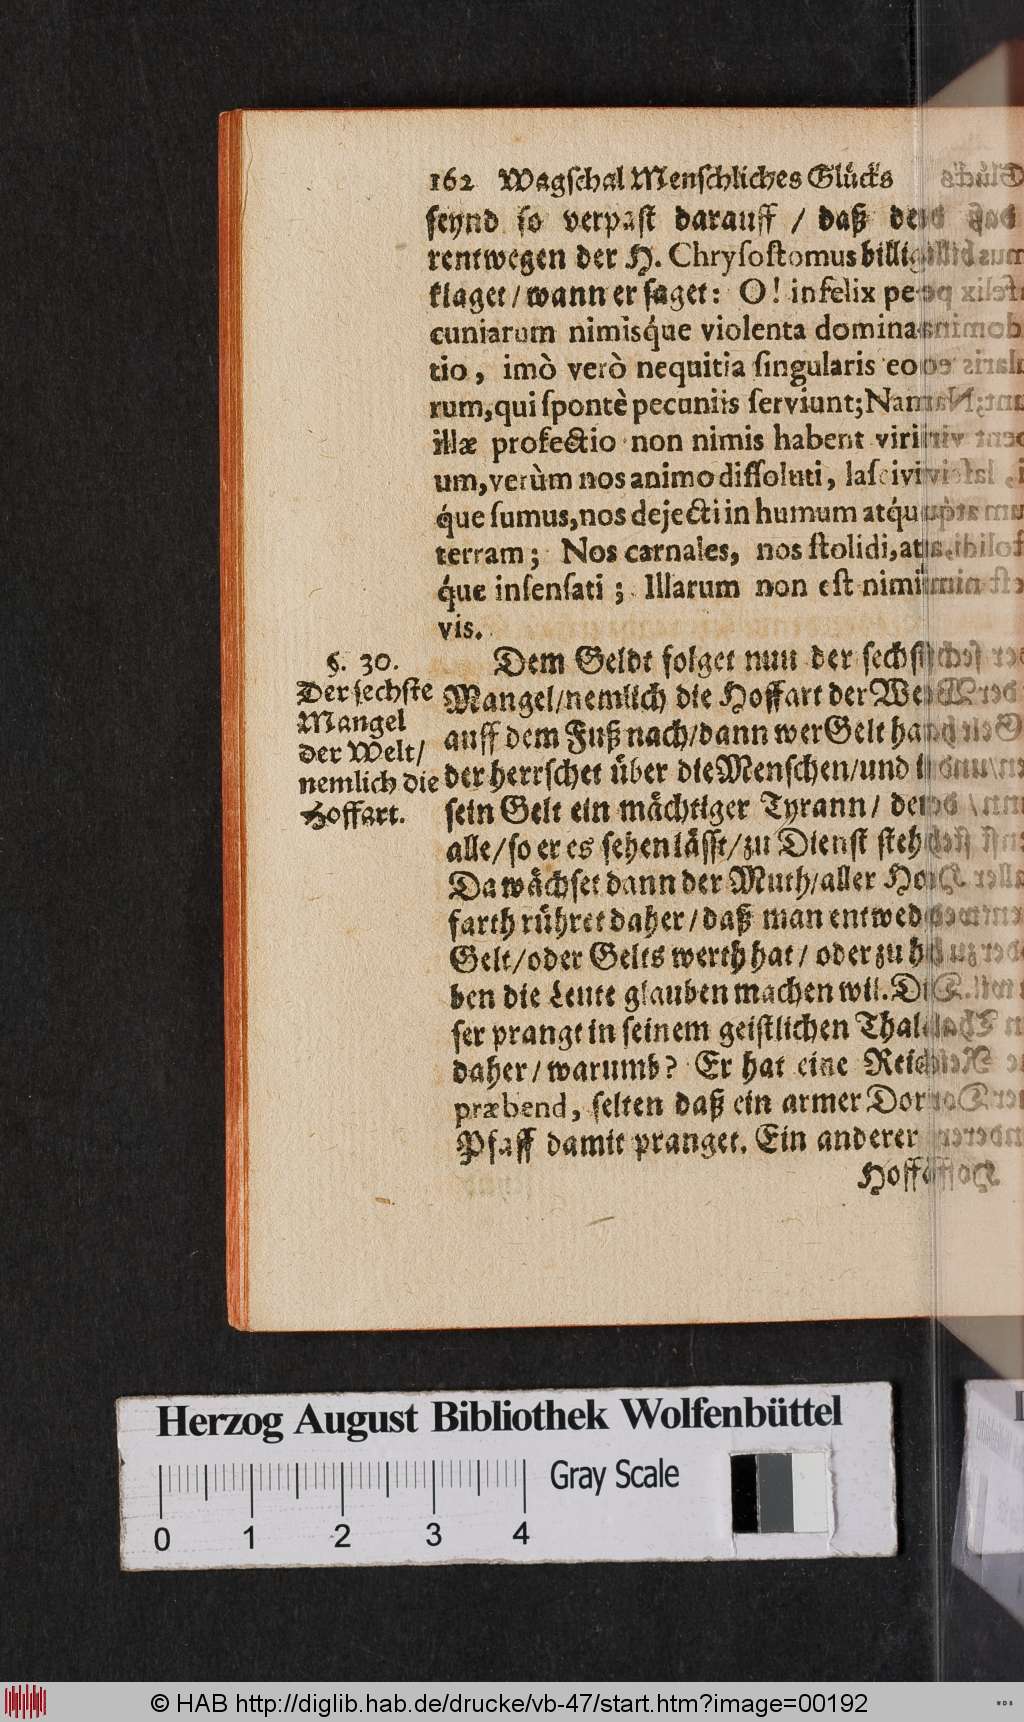 162 Wagschal Menschliches Glücks
seynd so verpast darauff / daß de-
rentwegen der H. Chrysostomus billig
klaget / wann er saget: O! infelix pe-
cuniarum nimisq́ue violenta domina-
tio, imò verò nequitia singularis eo-
rum, qui spontè pecuniis serviunt; Nam
illæ profectio non nimis habent viri-
um, verùm nos animo dissoluti, lascivi-
q́ue sumus, nos dejecti in humum atq́;
terram; Nos carnales, nos stolidi, at-
q́ue insensati; Illarum non est nimia
vis.
§. 30.
Der sechste
Mangel
der Welt/
nemlich die
Hoffart.
Dem Geldt folget nun der sechste
Mangel/nemlich die Hoffart der Welt
auff dem Fuß nach/dann wer Gelt hat
der herrschet über die Menschen/und
sein Gelt ein mächtiger Tyrann/ dem
alle/so er es sehen lässt/zu Dienst steh
Da wächset dann der Muth/aller Hof
farth rühret daher/daß man entweder
Gelt/oder Gelts werth hat/ oder zu ha
ben die Leute glauben machen wil. Die
ser prangt in seinem geistlichen Thal
daher/warumb? Er hat eine Reiche
præbend, selten daß ein armer Dorf
Pfaff damit pranget. Ein anderer
Hoff
Herzog August Bibliothek Wolfenbüttel
Gray Scale
0 1 2 3 4
© HAB http://diglib.hab.de/drucke/vb-47/start.htm?image=00192